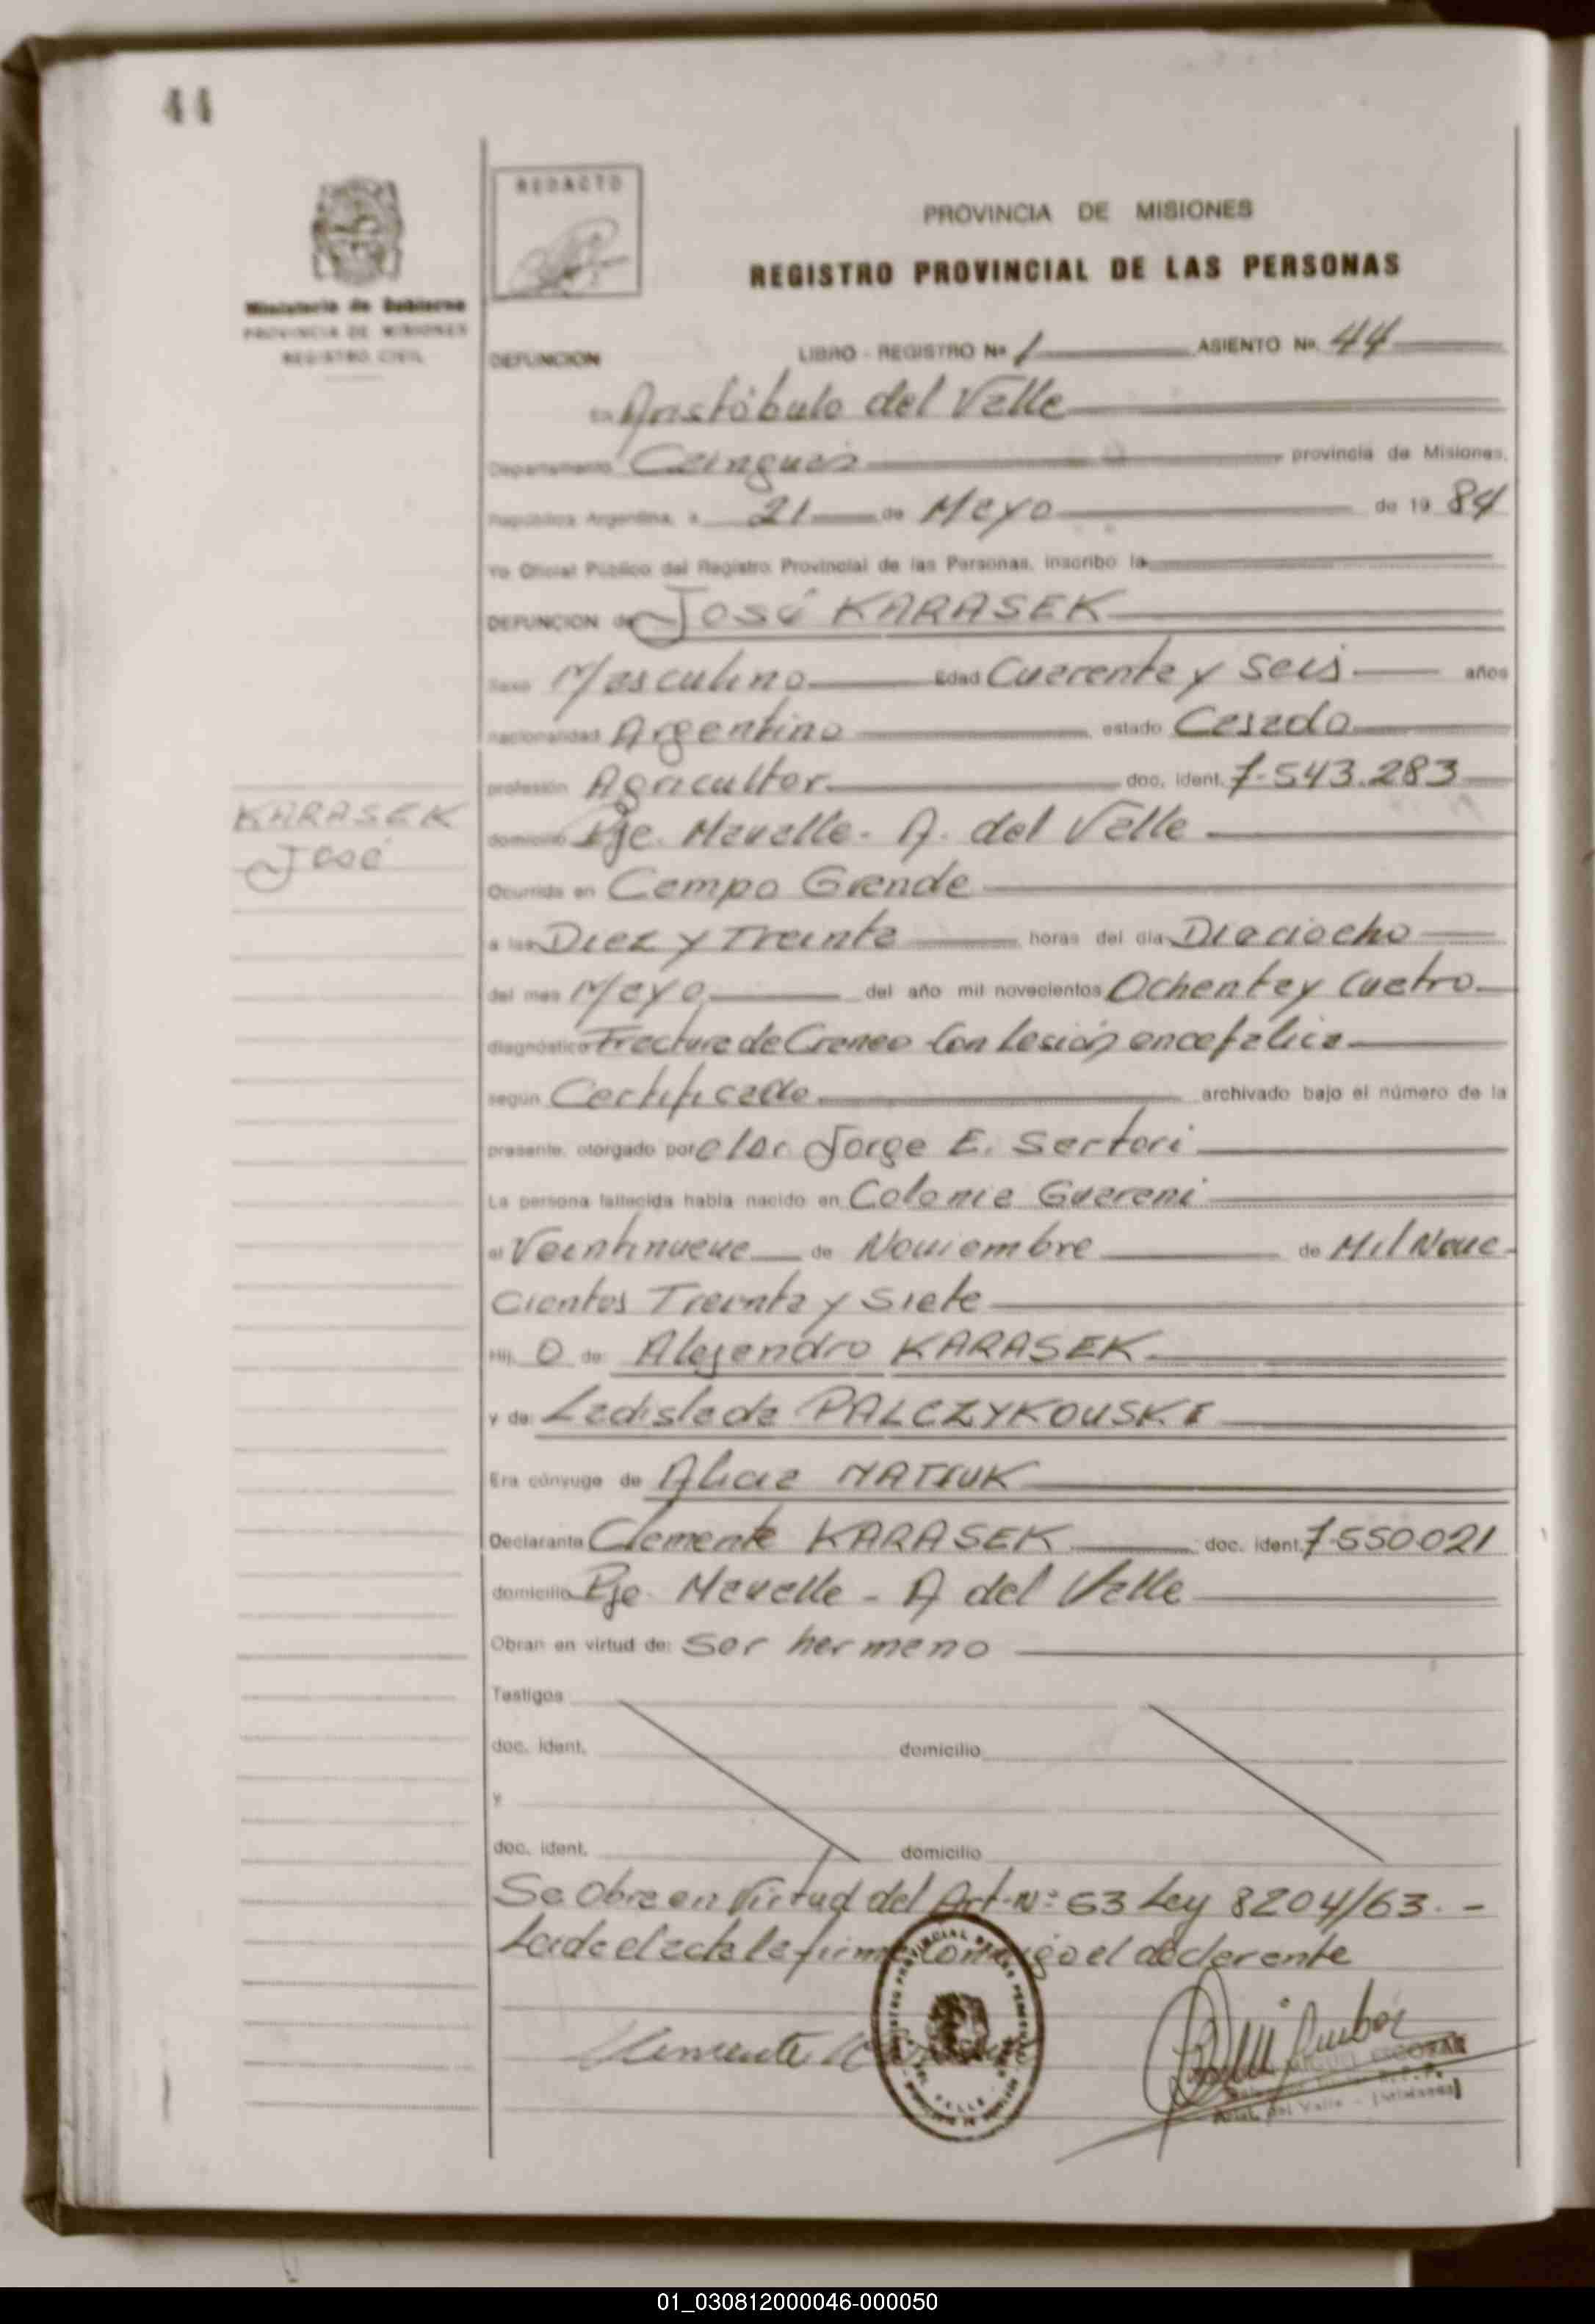 44
REDACTO
PROVINCIA DE MISIONES
REGISTRO PROVINCIAL DE LAS PERSONAS
Ministerio de Gobierno
PROVINCIA DE MISIONES
REGISTRO CIVIL
DEFUNCION LIBRO - REGISTRO Nº 1 ASIENTO Nº 44
En Aristóbulo del Valle
Departamento Cainguás provincia de Misiones,
República Argentina, a 21 de Mayo de 19 84
Yo Oficial Público del Registro Provincial de las Personas, inscribo la
DEFUNCION de José KARASEK
Sexo Masculino Edad Cuarenta y Seis años
nacionalidad Argentino estado Casado
profesión Agricultor doc. ident. 7-543.283
KARASEK
José
domicilio Pje. Mavalle - A. del Valle
Ocurrida en Campo Grande
a las Diez y Treinta horas del día Dieciocho
del mes Mayo del año mil novecientos Ochenta y Cuatro
diagnóstico Fractura de Craneo Con Lesión encefalica
según Certificado archivado bajo el número de la
presente, otorgado por el Dr. Jorge E. Sartori
La persona fallecida había nacido en Colonia Guarani
el Veintinueve de Noviembre de Mil Nove-
cientos Treinta y Siete
Hij O de: Alejandro KARASEK
y de: Ladislada PALCZYKOUSKI
Era cónyuge de Alicia MATIUK
Declarante Clemente KARASEK doc. ident. 7-550.021
domicilio Pje. Mavalle - A del Valle
Obran en virtud de: Ser hermano
Testigos
doc. ident. domicilio
y
doc. ident. domicilio
Se Obra en Virtud del Art. Nº 53 Ley 8204/63. -
Leida el acta la firma Conmigo el declarante
Clemente
MIGUEL ESCOBAR
Arist. del Valle - (Misiones)
01_030812000046-000050